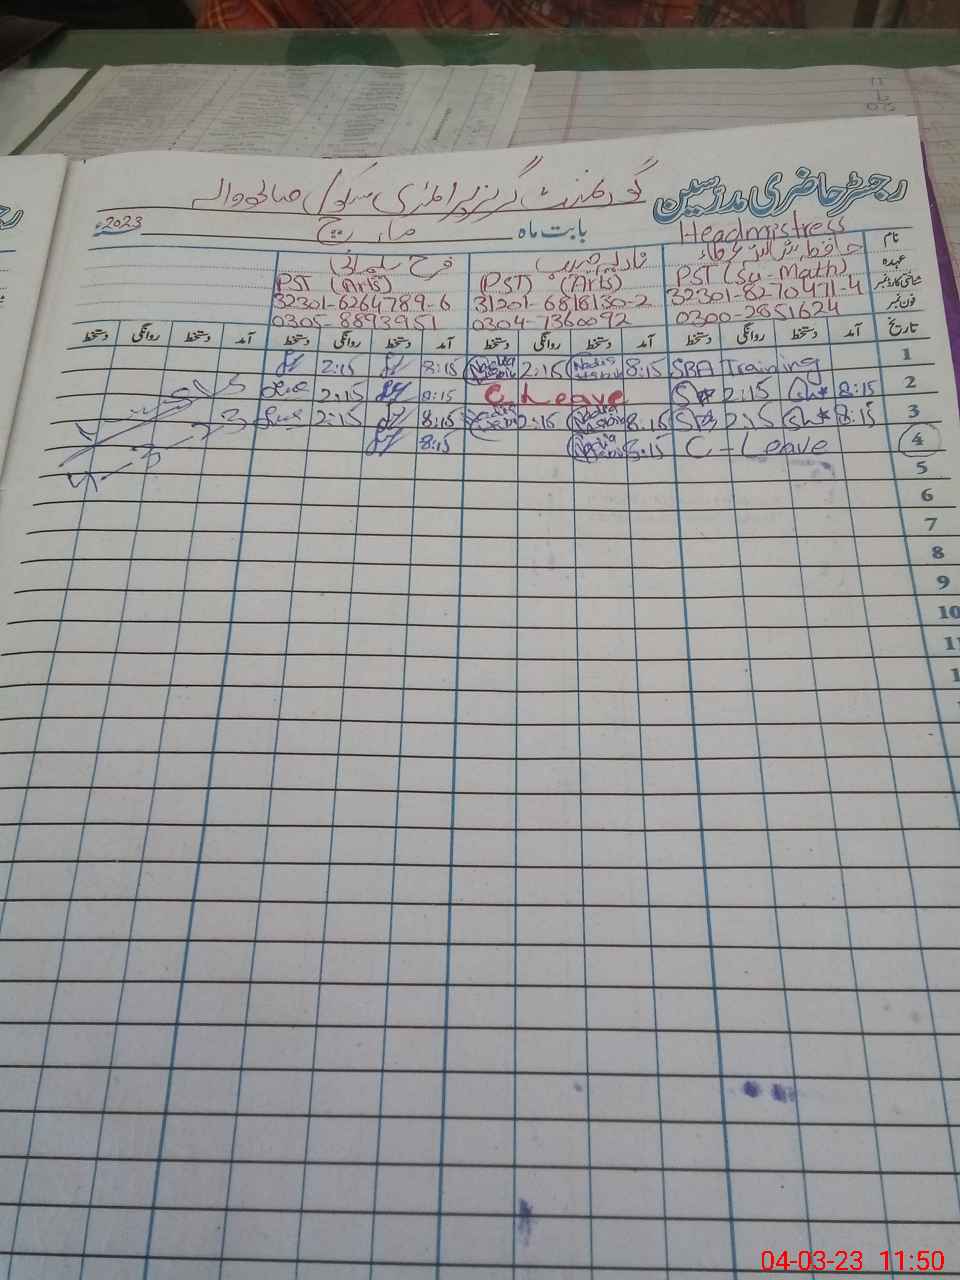 رجسٹر حاضری مدرسین گورنمنٹ گرلز پرائمری سکول
بابت ماہ مارچ 2023ء
Headmistress
نام
عہدہ
شناختی کارڈ نمبر
فون نمبر
PST (Su-Math) PST (Arts) PST (Arts)
32301-8270471-4 31201-6818130-2 32301-6264789-6
0300-2851624 0304-7360092 0305-8893951
تاریخ آمد دستخط روانگی دستخط آمد دستخط روانگی دستخط آمد دستخط روانگی دستخط آمد دستخط روانگی دستخط
1 SBA Training 8:15 2:15 8:15 2:15
2 8:15 2:15 C Leave 8:15 2:15
3 8:15 2:15 8:15 2:15 8:15 2:15
4 C - Leave 8:15 8:15
5
6
7
8
9
10
04-03-23 11:50